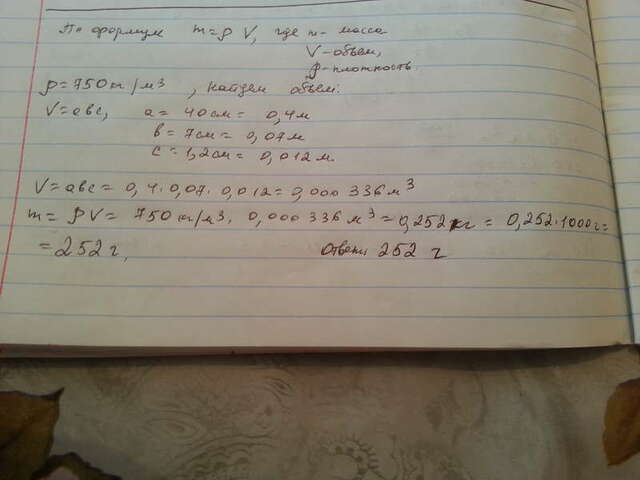 По формуле m = ρ V, где m - масса
V - объем,
ρ - плотность.
ρ = 750 кг/м³, найдем объем:
V = abc, a = 40 см = 0,4 м
b = 7 см = 0,07 м
c = 1,2 см = 0,012 м.
V = abc = 0,4 · 0,07 · 0,012 = 0,000 336 м³
m = ρV = 750 кг/м³ · 0,000 336 м³ = 0,252 кг = 0,252 · 1000 г =
= 252 г, Ответ: 252 г